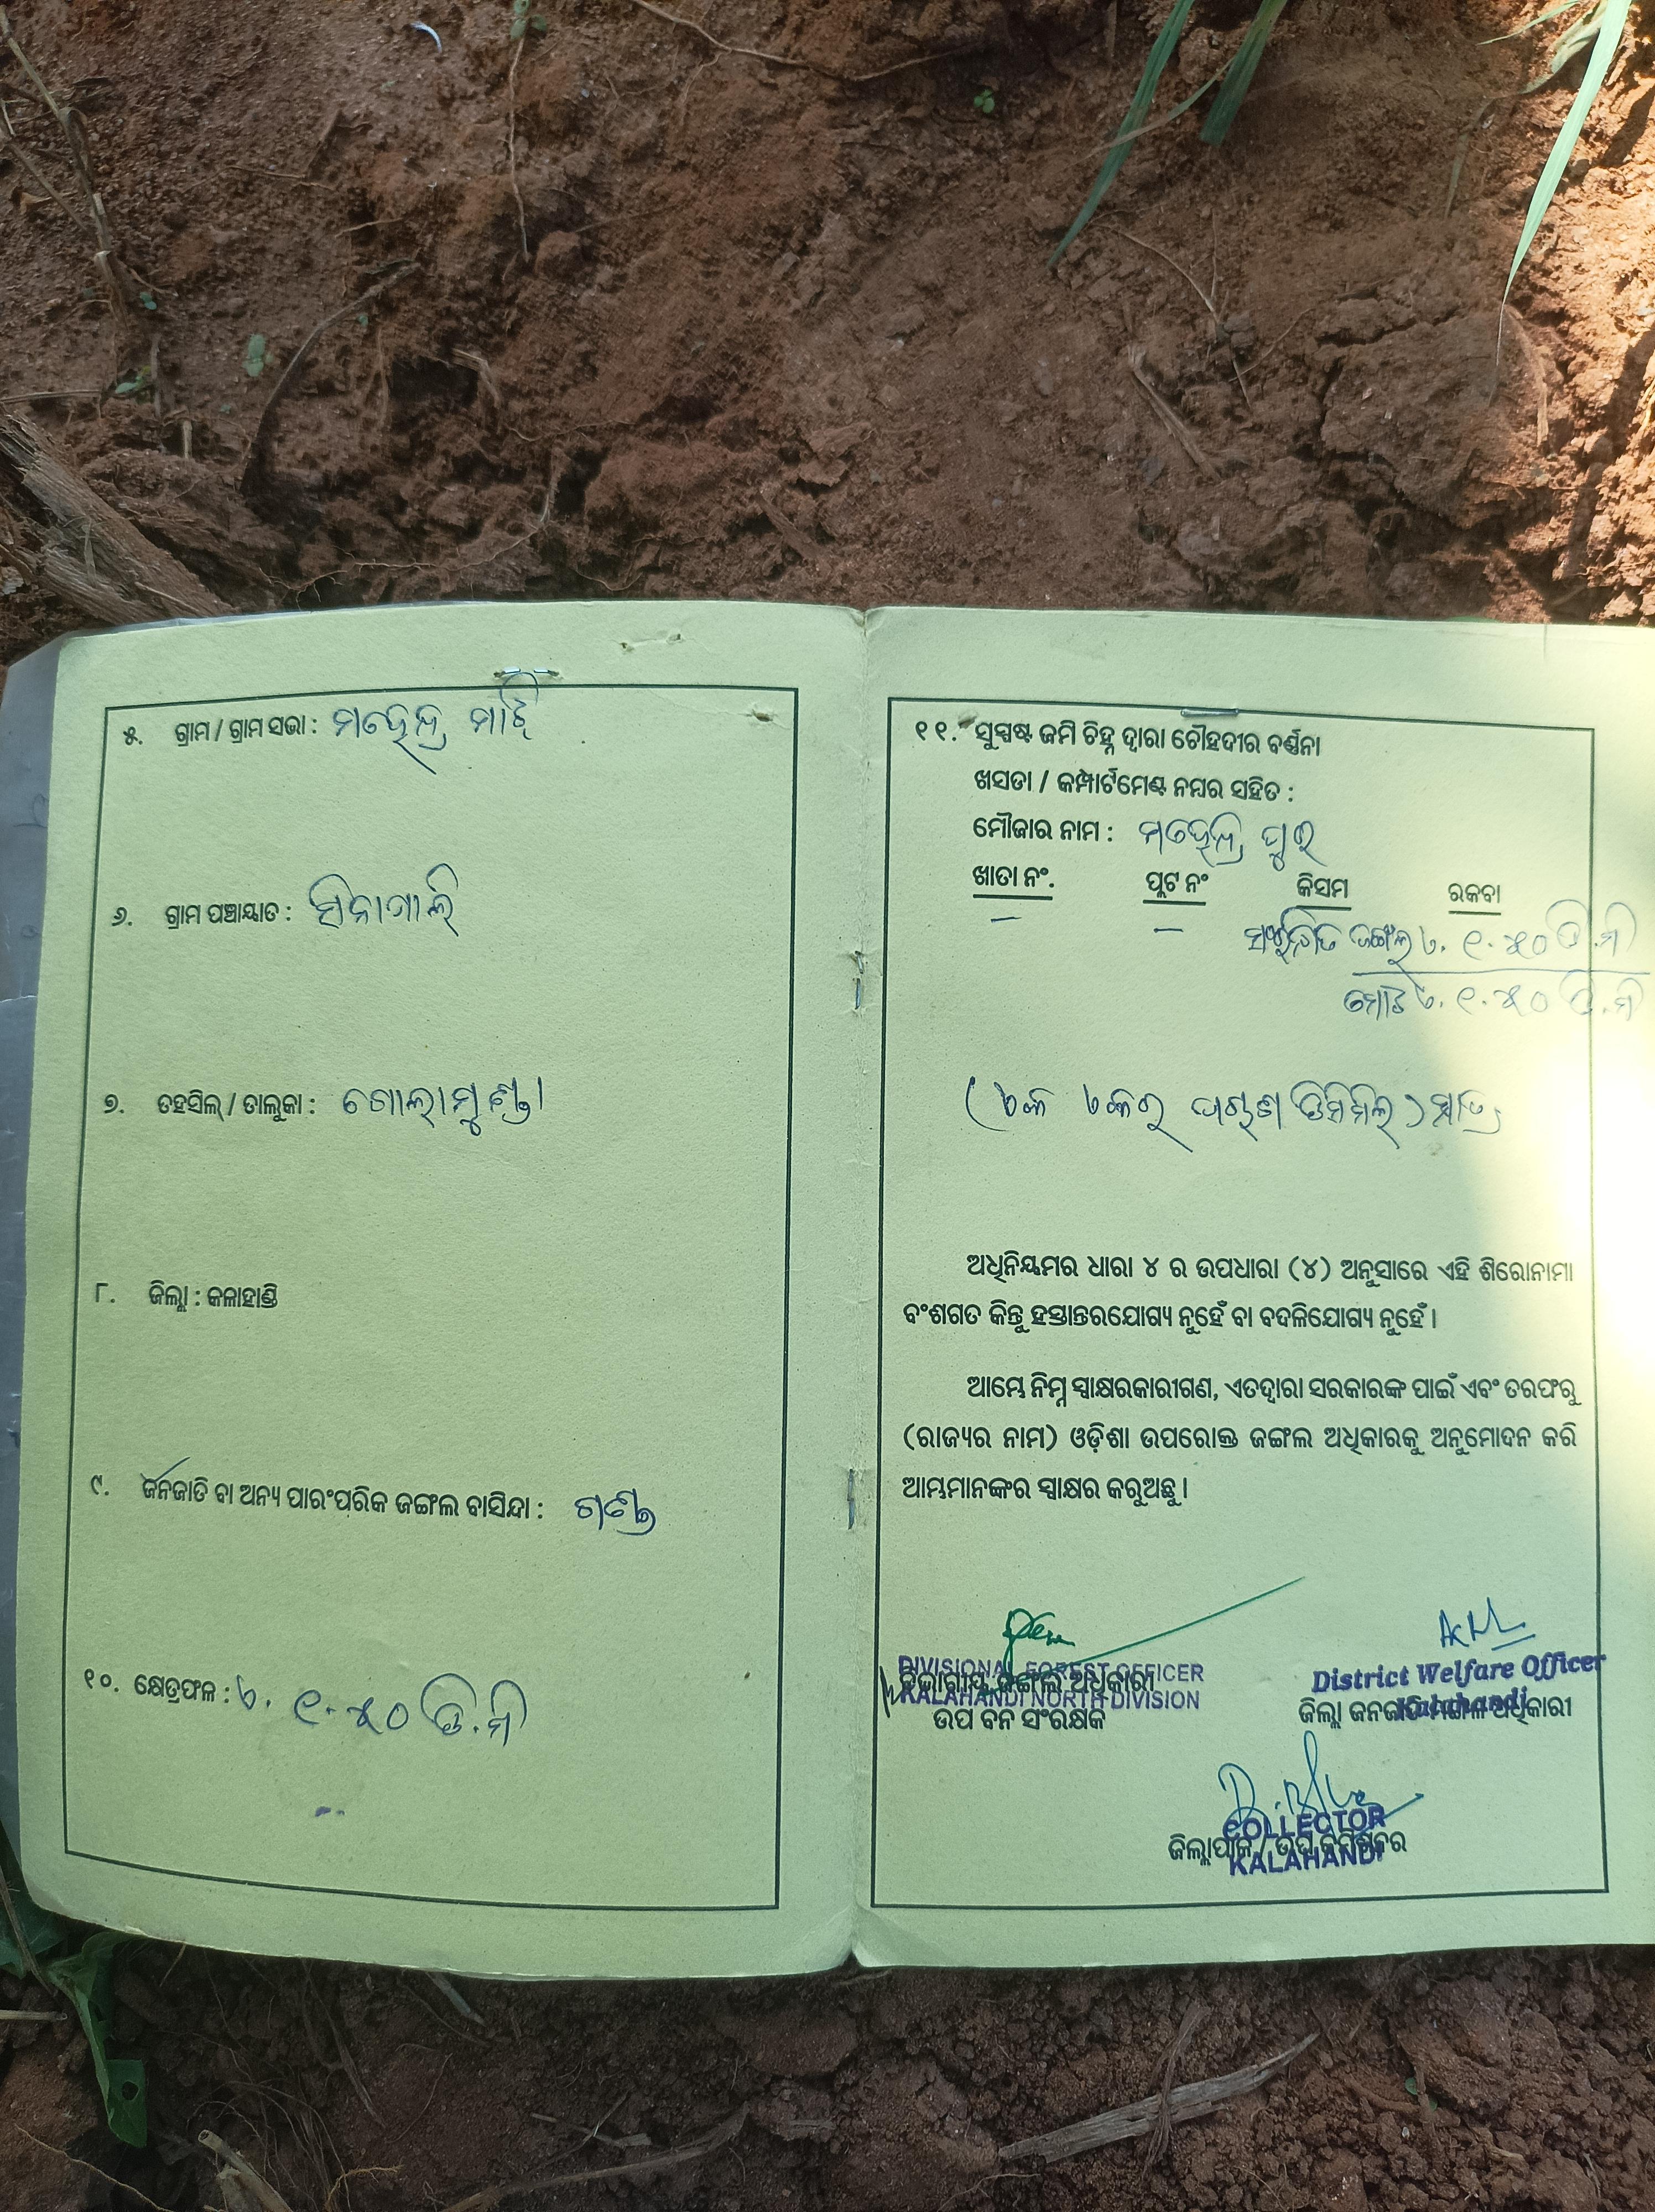 ୫. ଗ୍ରାମ / ଗ୍ରାମ ସଭା : ମହେନ୍ଦ୍ର ମାଝି
୬. ଗ୍ରାମ ପଞ୍ଚାୟାତ : ସିନାଗାଲି
୭. ତହସିଲ୍ / ତାଲୁକା : ଗୋଲାମୁଣ୍ଡା
୮. ଜିଲ୍ଲା : କଳାହାଣ୍ଡି
୯. ଜନଜାତି ବା ଅନ୍ୟ ପାରଂପରିକ ଜଙ୍ଗଲ ବାସିନ୍ଦା : ଗଣ୍ଡ
୧୦. କ୍ଷେତ୍ରଫଳ : ଏ. ୧.୫୦ ଡି.ମି
୧୧. ସୁସ୍ପଷ୍ଟ ଜମି ଚିହ୍ନ ଦ୍ୱାରା ଚୌହଦୀର ବର୍ଣ୍ଣନା
ଖସଡା / କମ୍ପାର୍ଟମେଣ୍ଟ ନମ୍ବର ସହିତ :
ମୌଜାର ନାମ : ମହେନ୍ଦ୍ର ପୁର
ଖାତା ନଂ. ପ୍ଲଟ ନଂ କିସମ ରକବା
– – ଜଙ୍ଗଲ ଏ. ୧.୫୦ ଡି.ମି
ମୋଟ ଏ. ୧.୫୦ ଡି.ମି
(ଏକ ଏକର ପଚାଶ ଡିସିମିଲ) ମାତ୍ର
ଅଧିନିୟମର ଧାରା ୪ ର ଉପଧାରା (୪) ଅନୁସାରେ ଏହି ଶିରୋନାମା
ବଂଶଗତ କିନ୍ତୁ ହସ୍ତାନ୍ତରଯୋଗ୍ୟ ନୁହେଁ ବା ବଦଳିଯୋଗ୍ୟ ନୁହେଁ ।
ଆମ୍ଭେ ନିମ୍ନ ସ୍ୱାକ୍ଷରକାରୀଗଣ, ଏତଦ୍ୱାରା ସରକାରଙ୍କ ପାଇଁ ଏବଂ ତରଫରୁ
(ରାଜ୍ୟର ନାମ) ଓଡ଼ିଶା ଉପରୋକ୍ତ ଜଙ୍ଗଲ ଅଧିକାରକୁ ଅନୁମୋଦନ କରି
ଆମ୍ଭମାନଙ୍କର ସ୍ୱାକ୍ଷର କରୁଅଛୁ ।
DIVISIONAL FOREST OFFICER
ବିଭାଗୀୟ ଜଙ୍ଗଲ ଅଧିକାରୀ
KALAHANDI NORTH DIVISION
ଉପ ବନ ସଂରକ୍ଷକ
District Welfare Officer
Kalahandi
ଜିଲ୍ଲା ଜନଜାତି ମଙ୍ଗଳ ଅଧିକାରୀ
COLLECTOR
ଜିଲ୍ଲାପାଳ / ଉପ କମିଶନର
KALAHANDI